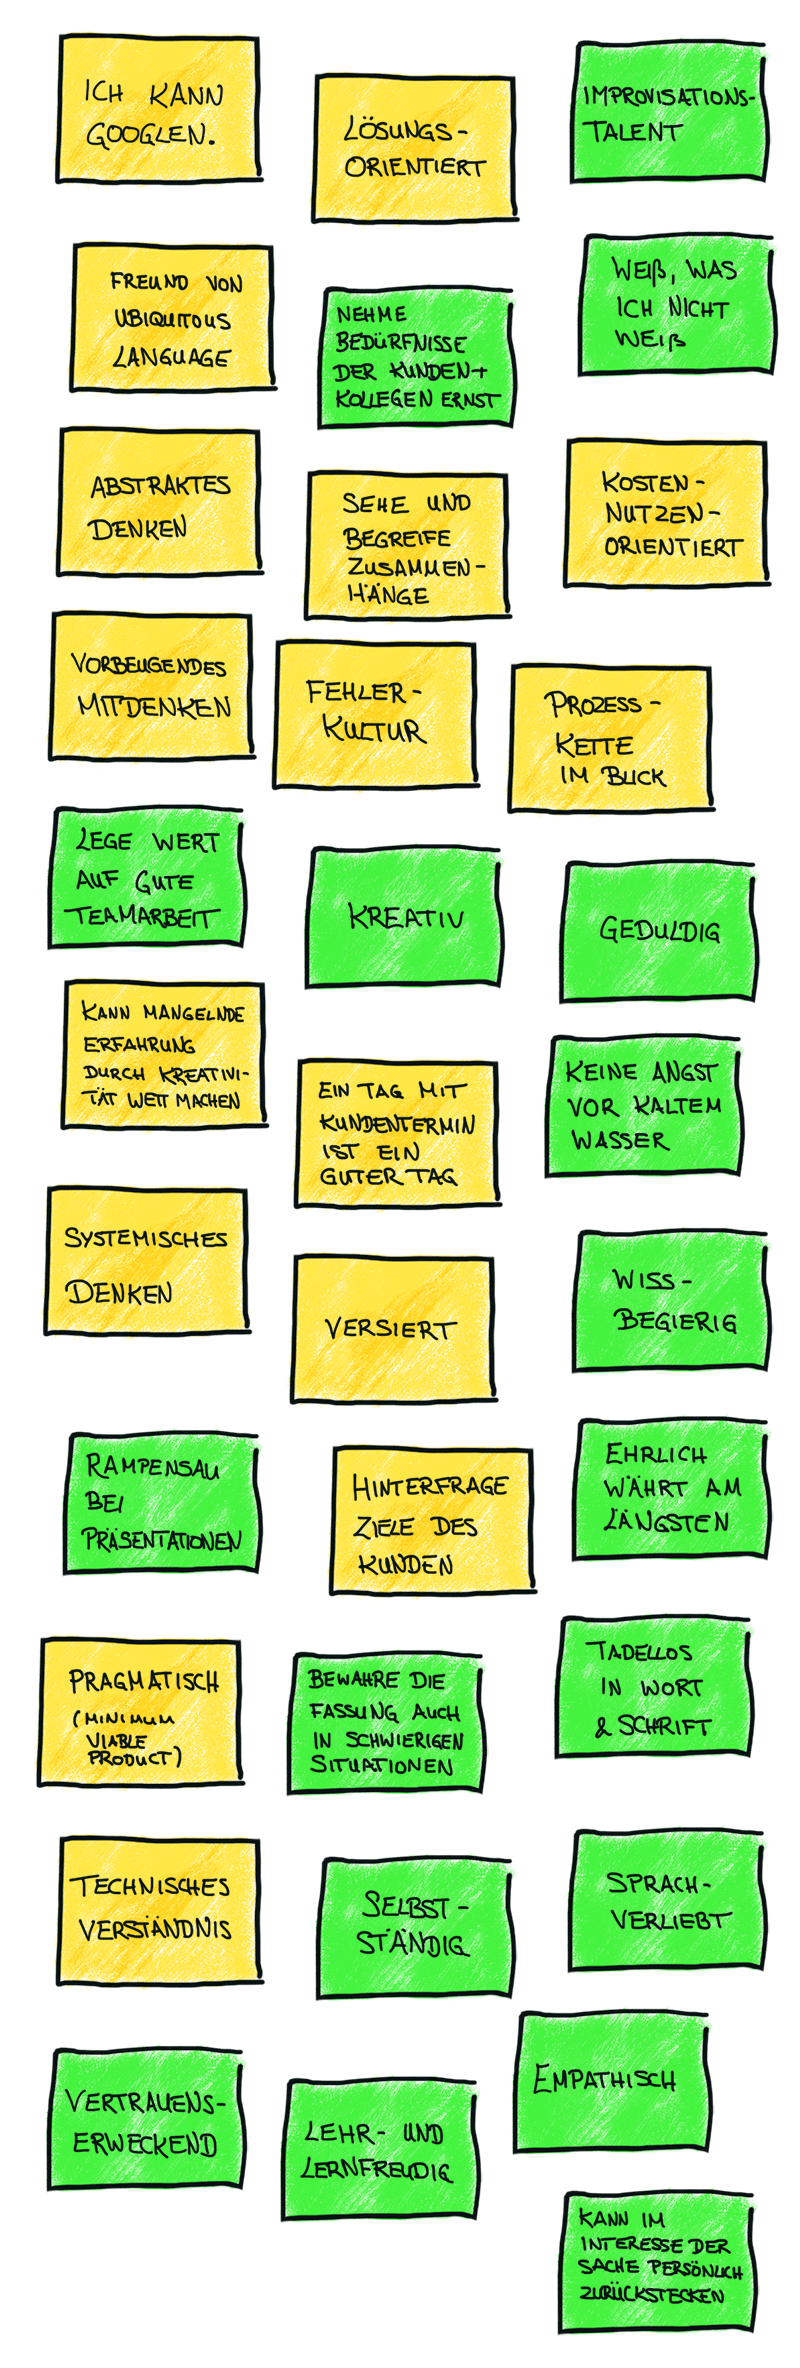 ICH KANN
GOOGLEN.
LÖSUNGS-
ORIENTIERT
IMPROVISATIONS-
TALENT
FREUND VON
UBIQUITOUS
LANGUAGE
NEHME
BEDÜRFNISSE
DER KUNDEN+
KOLLEGEN ERNST
WEIß, WAS
ICH NICHT
WEIß
ABSTRAKTES
DENKEN
SEHE UND
BEGREIFE
ZUSAMMEN-
HÄNGE
KOSTEN-
NUTZEN-
ORIENTIERT
VORBEUGENDES
MITDENKEN
FEHLER-
KULTUR
PROZESS-
KETTE
IM BLICK
LEGE WERT
AUF GUTE
TEAMARBEIT
KREATIV
GEDULDIG
KANN MANGELNDE
ERFAHRUNG
DURCH KREATIVI-
TÄT WETT MACHEN
EIN TAG MIT
KUNDENTERMIN
IST EIN
GUTER TAG
KEINE ANGST
VOR KALTEM
WASSER
SYSTEMISCHES
DENKEN
VERSIERT
WISS-
BEGIERIG
RAMPENSAU
BEI
PRÄSENTATIONEN
HINTERFRAGE
ZIELE DES
KUNDEN
EHRLICH
WÄHRT AM
LÄNGSTEN
PRAGMATISCH
(MINIMUM
VIABLE
PRODUCT)
BEWAHRE DIE
FASSUNG AUCH
IN SCHWIERIGEN
SITUATIONEN
TADELLOS
IN WORT
& SCHRIFT
TECHNISCHES
VERSTÄNDNIS
SELBST-
STÄNDIG
SPRACH-
VERLIEBT
VERTRAUENS-
ERWECKEND
LEHR- UND
LERNFREUDIG
EMPATHISCH
KANN IM
INTERESSE DER
SACHE PERSÖNLICH
ZURÜCKSTECKEN